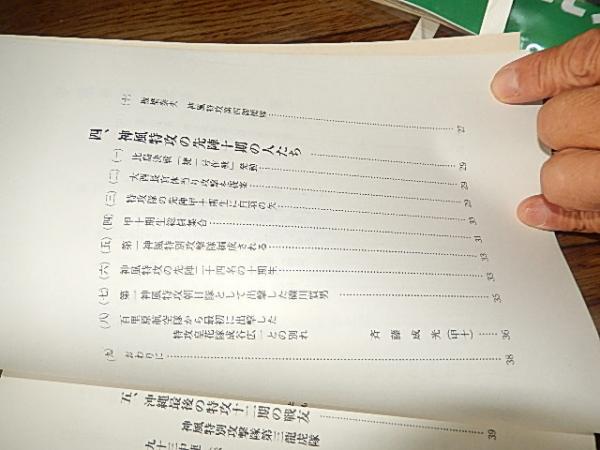 (十)
神風特攻第四御楯隊
27
四、神風特攻の先陣十期の人たち
29
(一) 比島決戦「捷一号作戦」発動
29
(二) 大西長官体当り攻撃を提案
29
(三) 特攻隊の先陣甲十期生に白羽の矢
30
(四) 甲十期生総員集合
31
(五) 第一神風特別攻撃隊編成される
33
(六) 神風特攻の先陣二十四名の十期生
33
(七) 第一神風特攻朝日隊として出撃した磯川質男
35
(八) 百里原航空隊から最初に出撃した
特攻皇花隊成谷広一との別れ
斉藤成光(甲十)
36
(九) おわりに
38
五、沖縄最後の特攻十二期の戦友
39
神風特別攻撃隊第三龍虎隊
九十三中